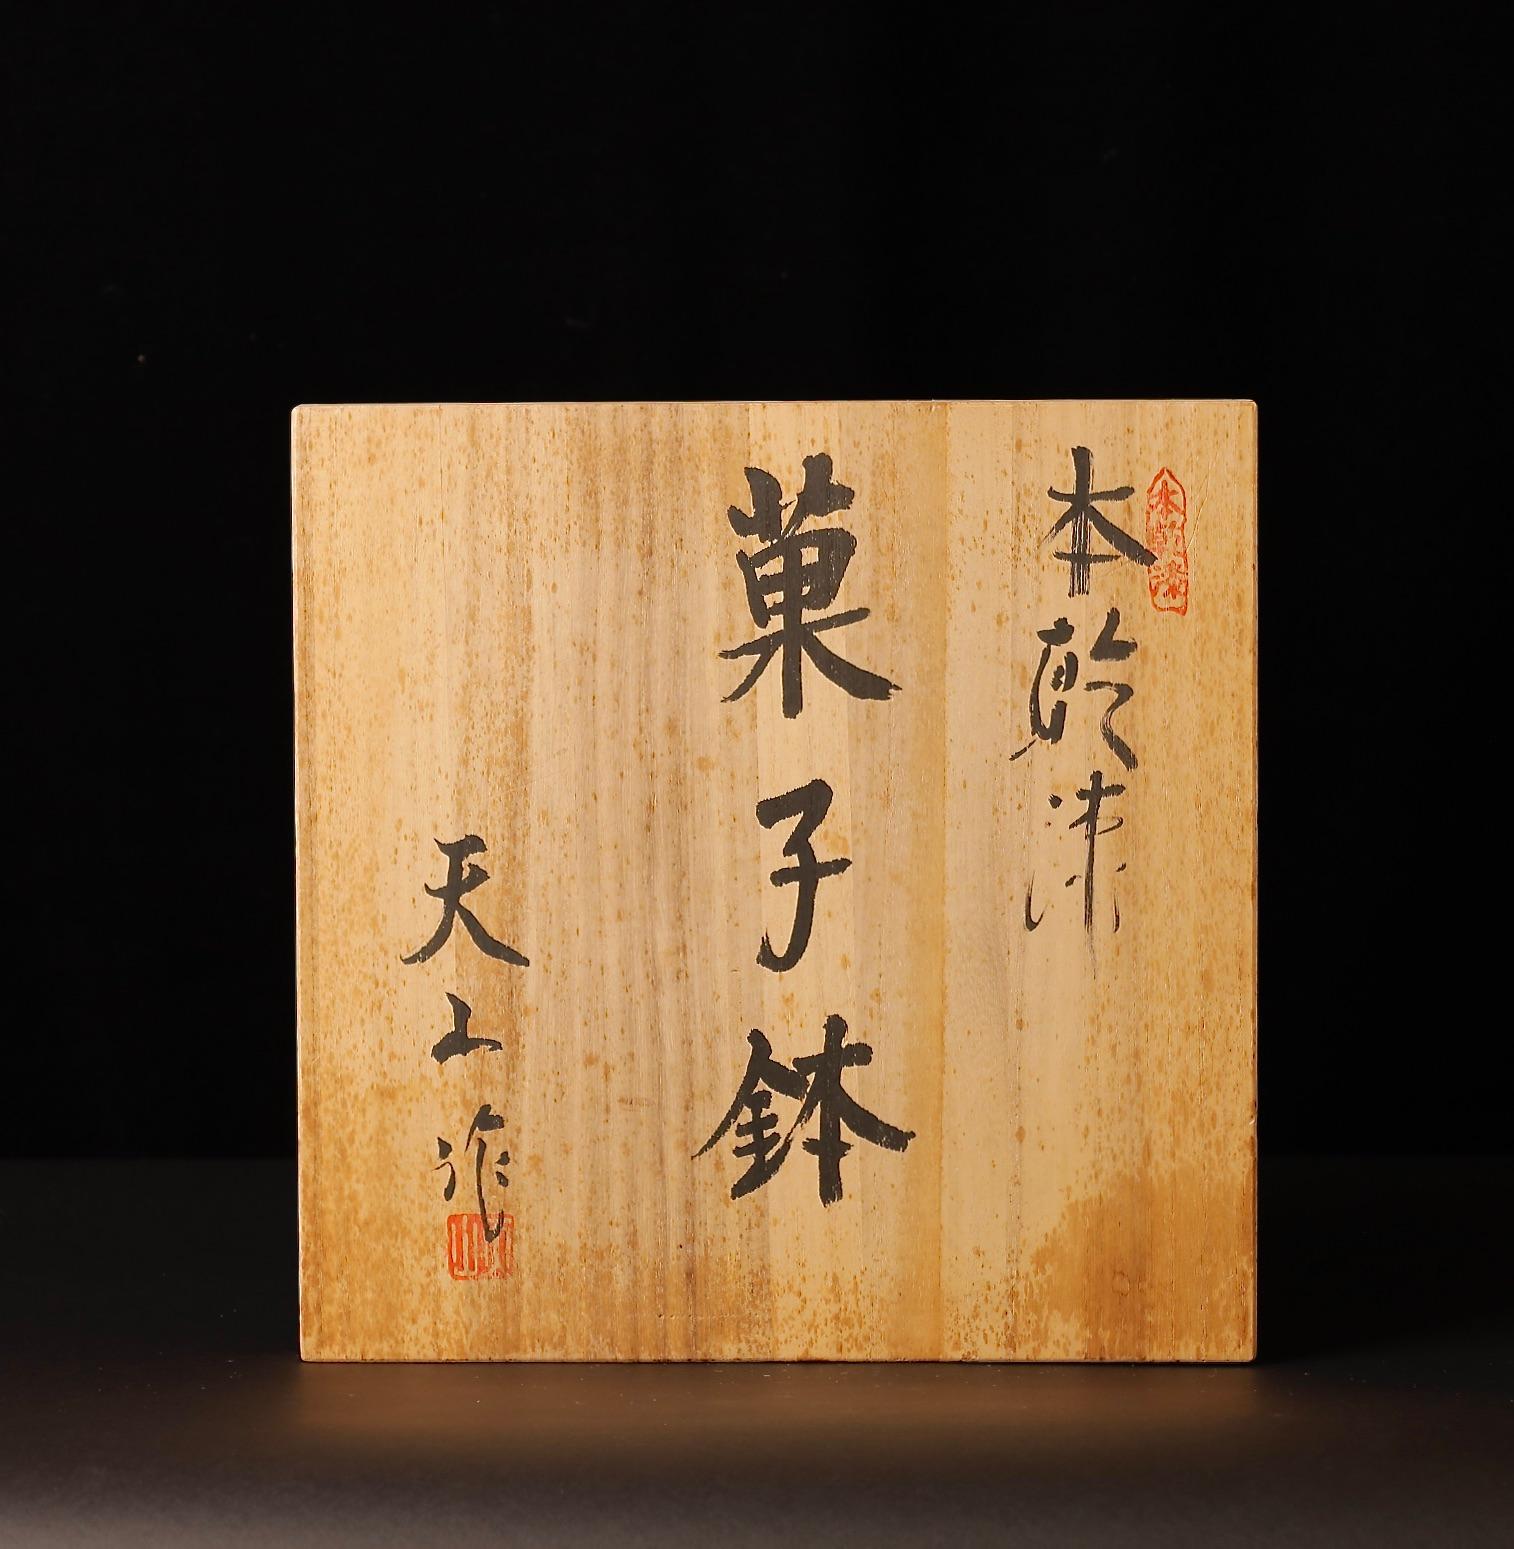 本乾漆
本乾漆
菓子鉢
天山作